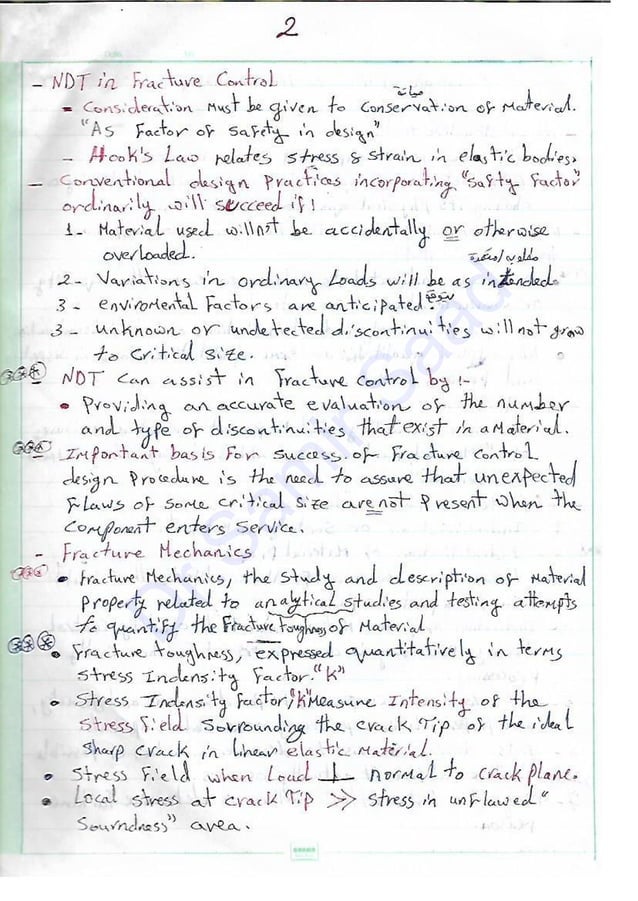 2
- NDT in Fracture Control
صيانة
= Consideration Must be given to Conservation of Material.
"As Factor of Safety in design"
- Hook's Law relates stress & strain in elastic bodies.
- Conventional design Practices incorporating "Safty Factor"
ordinarily will succeed if!
1- Material used will not be accidentally or otherwise
overloaded.
2- Variations in ordinary Loads will be as intended
3- enviromental Factors are anticipated.
متوقعة
3- unknown or undetected discontinuities will not grow
to Critical Size.
NDT Can assist in Fracture Control by :-
• Providing an accurate evaluation of the number
and type of discontinuities that exist in a Material.
Important basis For success of Fracture Control
design Procedure is the need to assure that unexpected
Flaws of some Critical Size are not Present when the
Component enters Service.
- Fracture Mechanics
• Fracture Mechanics, the Study and description of Material
Property related to analytical studies and testing attempts
to quantify the Fracture Toughness of Material
• Fracture toughness, expressed quantitatively in terms
Stress Indensity Factor "K"
• Stress Indensity Factor, "K" Measure Intensity of the
Stress Field Sorrounding the Crack Tip of the ideal
Sharp Crack in linear elastic Material.
• Stress Field when Load ⊥ normal to Crack plane.
• Local Stress at Crack Tip >> Stress in unflawed "
Sourndness" area.
Dr Samir Saad